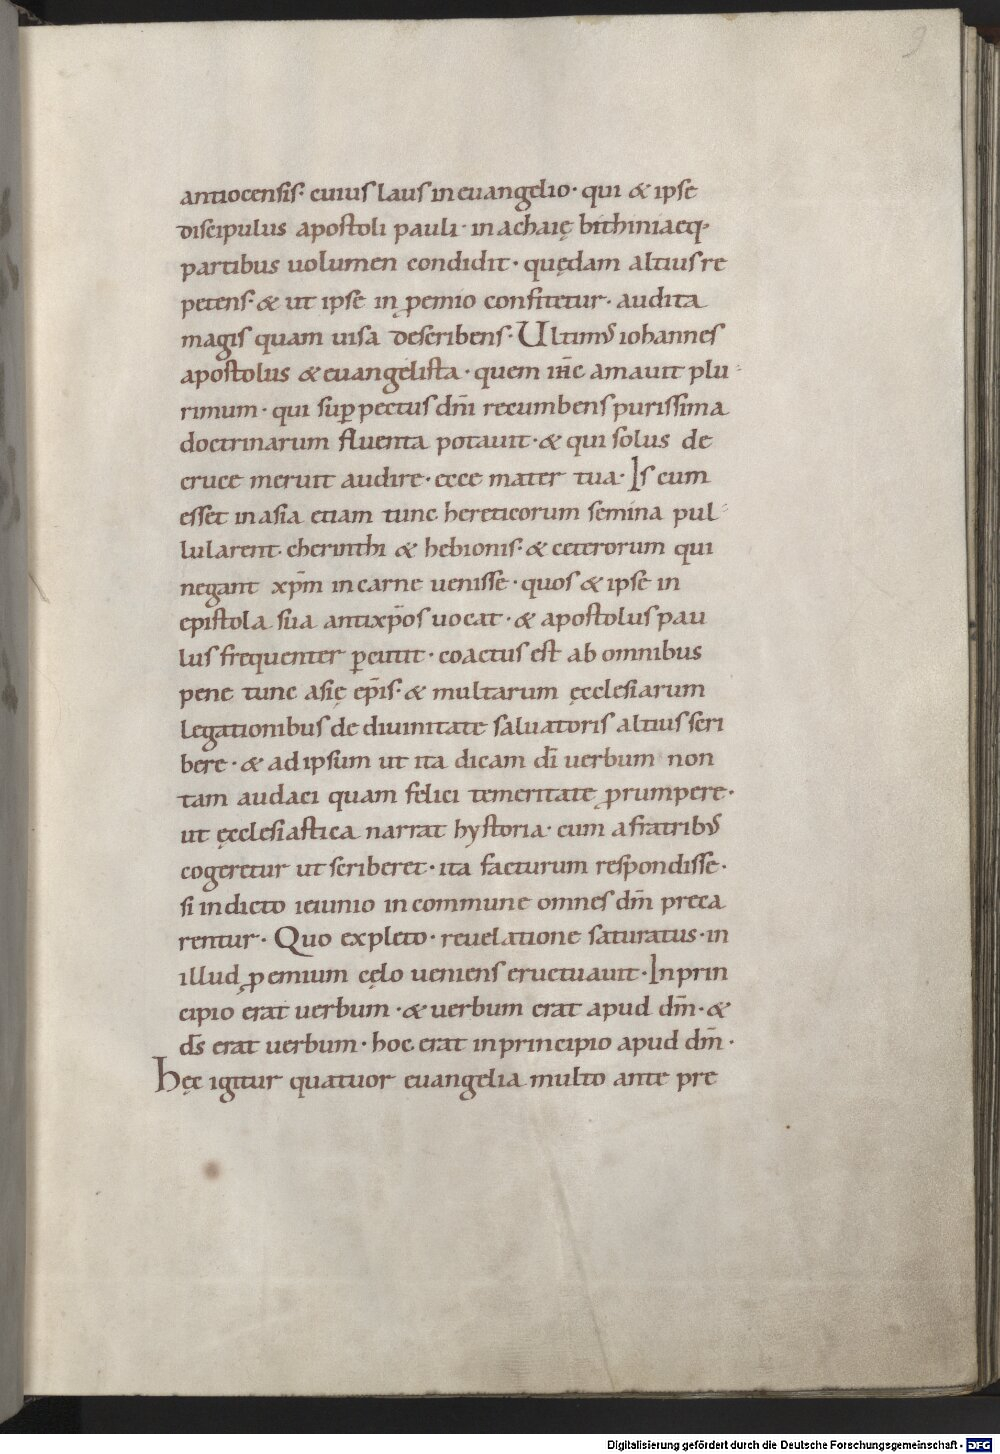 9
antiocensis· cuius laus in euangelio· qui & ipse
discipulus apostoli pauli· in achaię bithiniaeq·
partibus uolumen condidit· quędam altius re
petens· & ut ipse in ꝓemio confitetur· audita
magis quam uisa describens· Ultimus iohannes
apostolus & euangelista· quem ih̄c amauit plu
rimum· qui suꝑ pectus dn̄i recumbens purissima
doctrinarum fluenta potauit· & qui solus de
cruce meruit audire· ecce mater tua· Is cum
esset in asia etiam tunc hereticorum semina pul
lularent· cherinthi & hebionis· & ceterorum qui
negant xp̄m in carne uenisse· quos & ipse in
epistola sua antixp̄os uocat· & apostolus pau
lus frequenter ꝑcutit· coactus est ab omnibus
pene tunc asię ep̄is· & multarum ęcclesiarum
legationibus de diuinitate saluatoris altius scri
bere· & ad ipsum ut ita dicam dī uerbum non
tam audaci quam felici temeritate ꝓrumpere·
ut ęcclesiastica narrat hystoria· cum a fratribus
cogeretur ut scriberet· ita facturum respondisse·
si indicto ieiunio in commune omnes dm̄ preca
rentur· Quo expleto· reuelatione saturatus· in
illud ꝓemium cęlo ueniens eructuauit· In prin
cipio erat uerbum· & uerbum erat apud dm̄· &
ds̄ erat uerbum· hoc erat in principio apud dm̄·
Hęc igitur quatuor euangelia multo ante pre
Digitalisierung gefördert durch die Deutsche Forschungsgemeinschaft - DFG